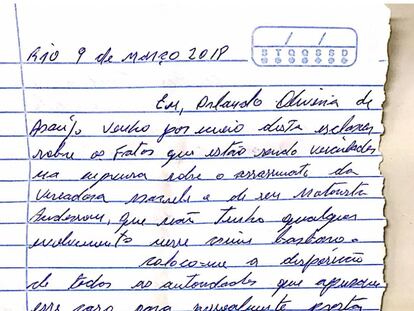 Rio 9 de março 2018
/ /
S T Q Q S S D
Eu, Orlando Oliveira de
Araújo venho por meio desta esclarecer
sobre os fatos que estão sendo veiculados
na imprensa sobre o assassinato da
Vereadora Marielle e de seu Motorista
Anderson, que não tenho qualquer
envolvimento nesse crime barbaro.
coloco-me a disposição
de todos as autoridades que apuram
esse caso para pessoalmente